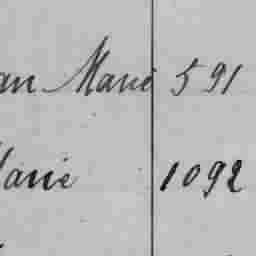 an Marie 591
Marie 1092